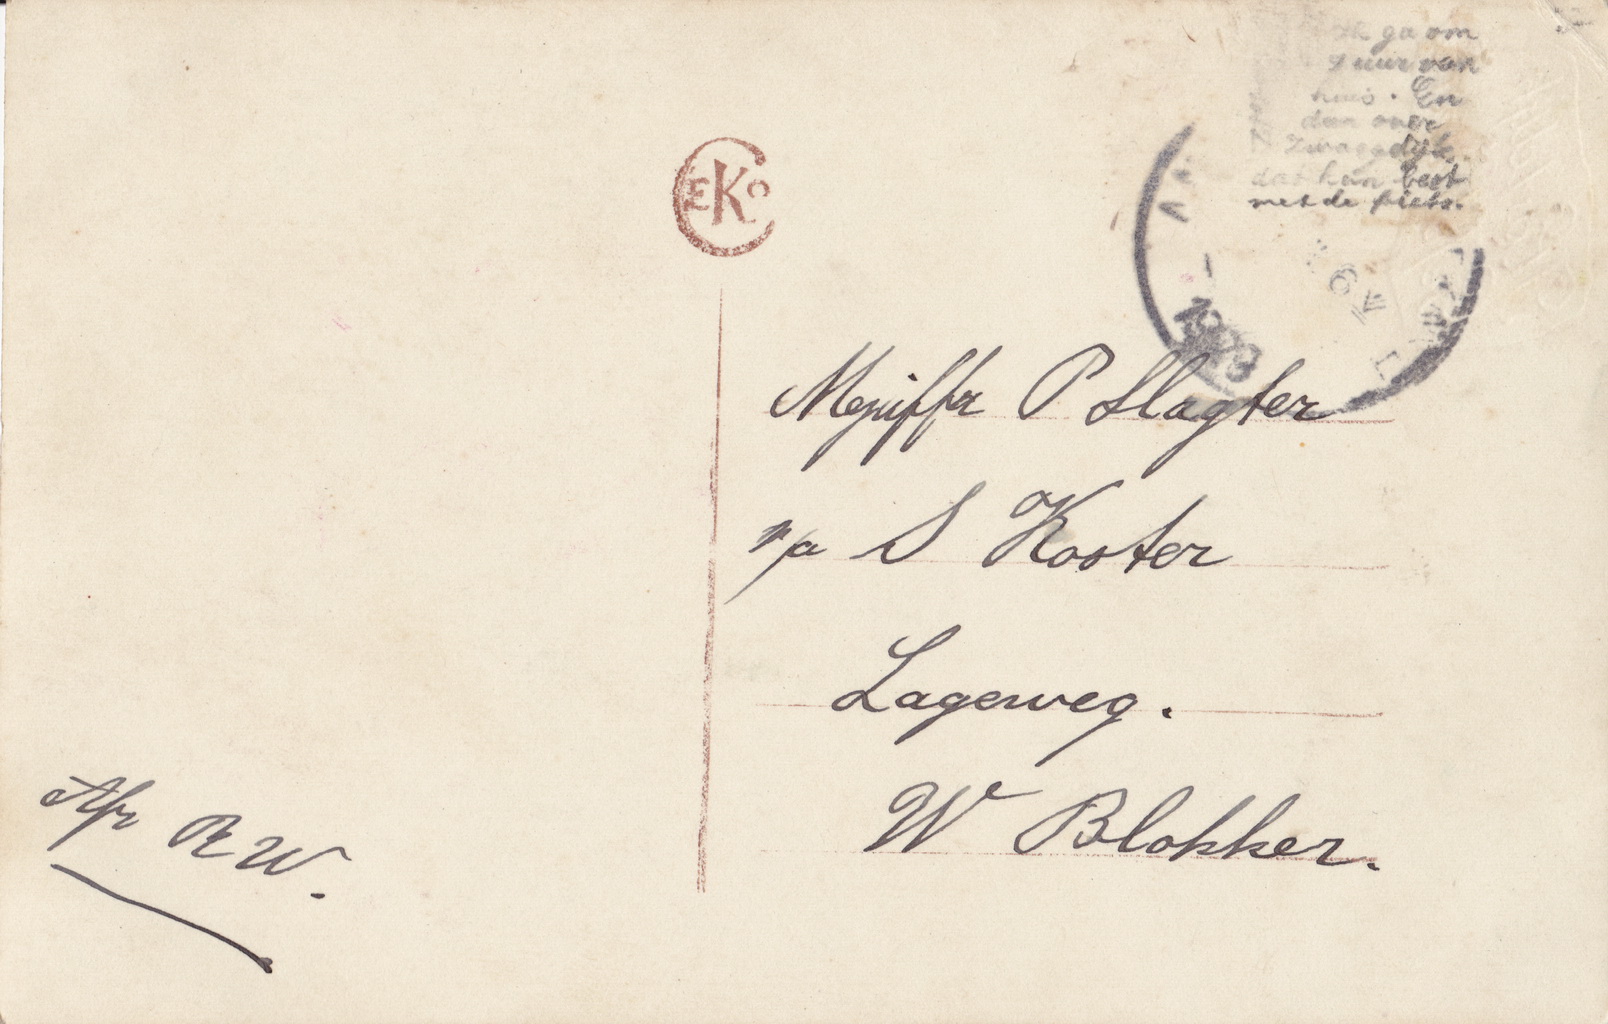 Ik ga om
7 uur van
huis. En
dan over
Zwaagdijk
dat kan best
met de fiets.
EKO
1923
Mejuffr P Slagter
p/a S Koster
Lageweg.
W Blokker.
Afz R W.